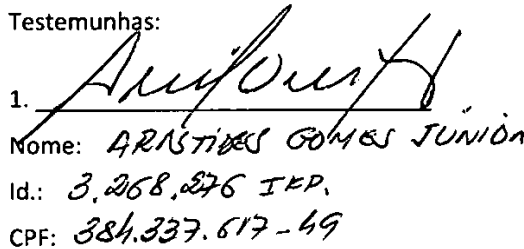 Testemunhas:
1.
Nome: ARISTIDES GOMES JÚNIOR
Id.: 3.268.276 IFP.
CPF: 384.337.617-49